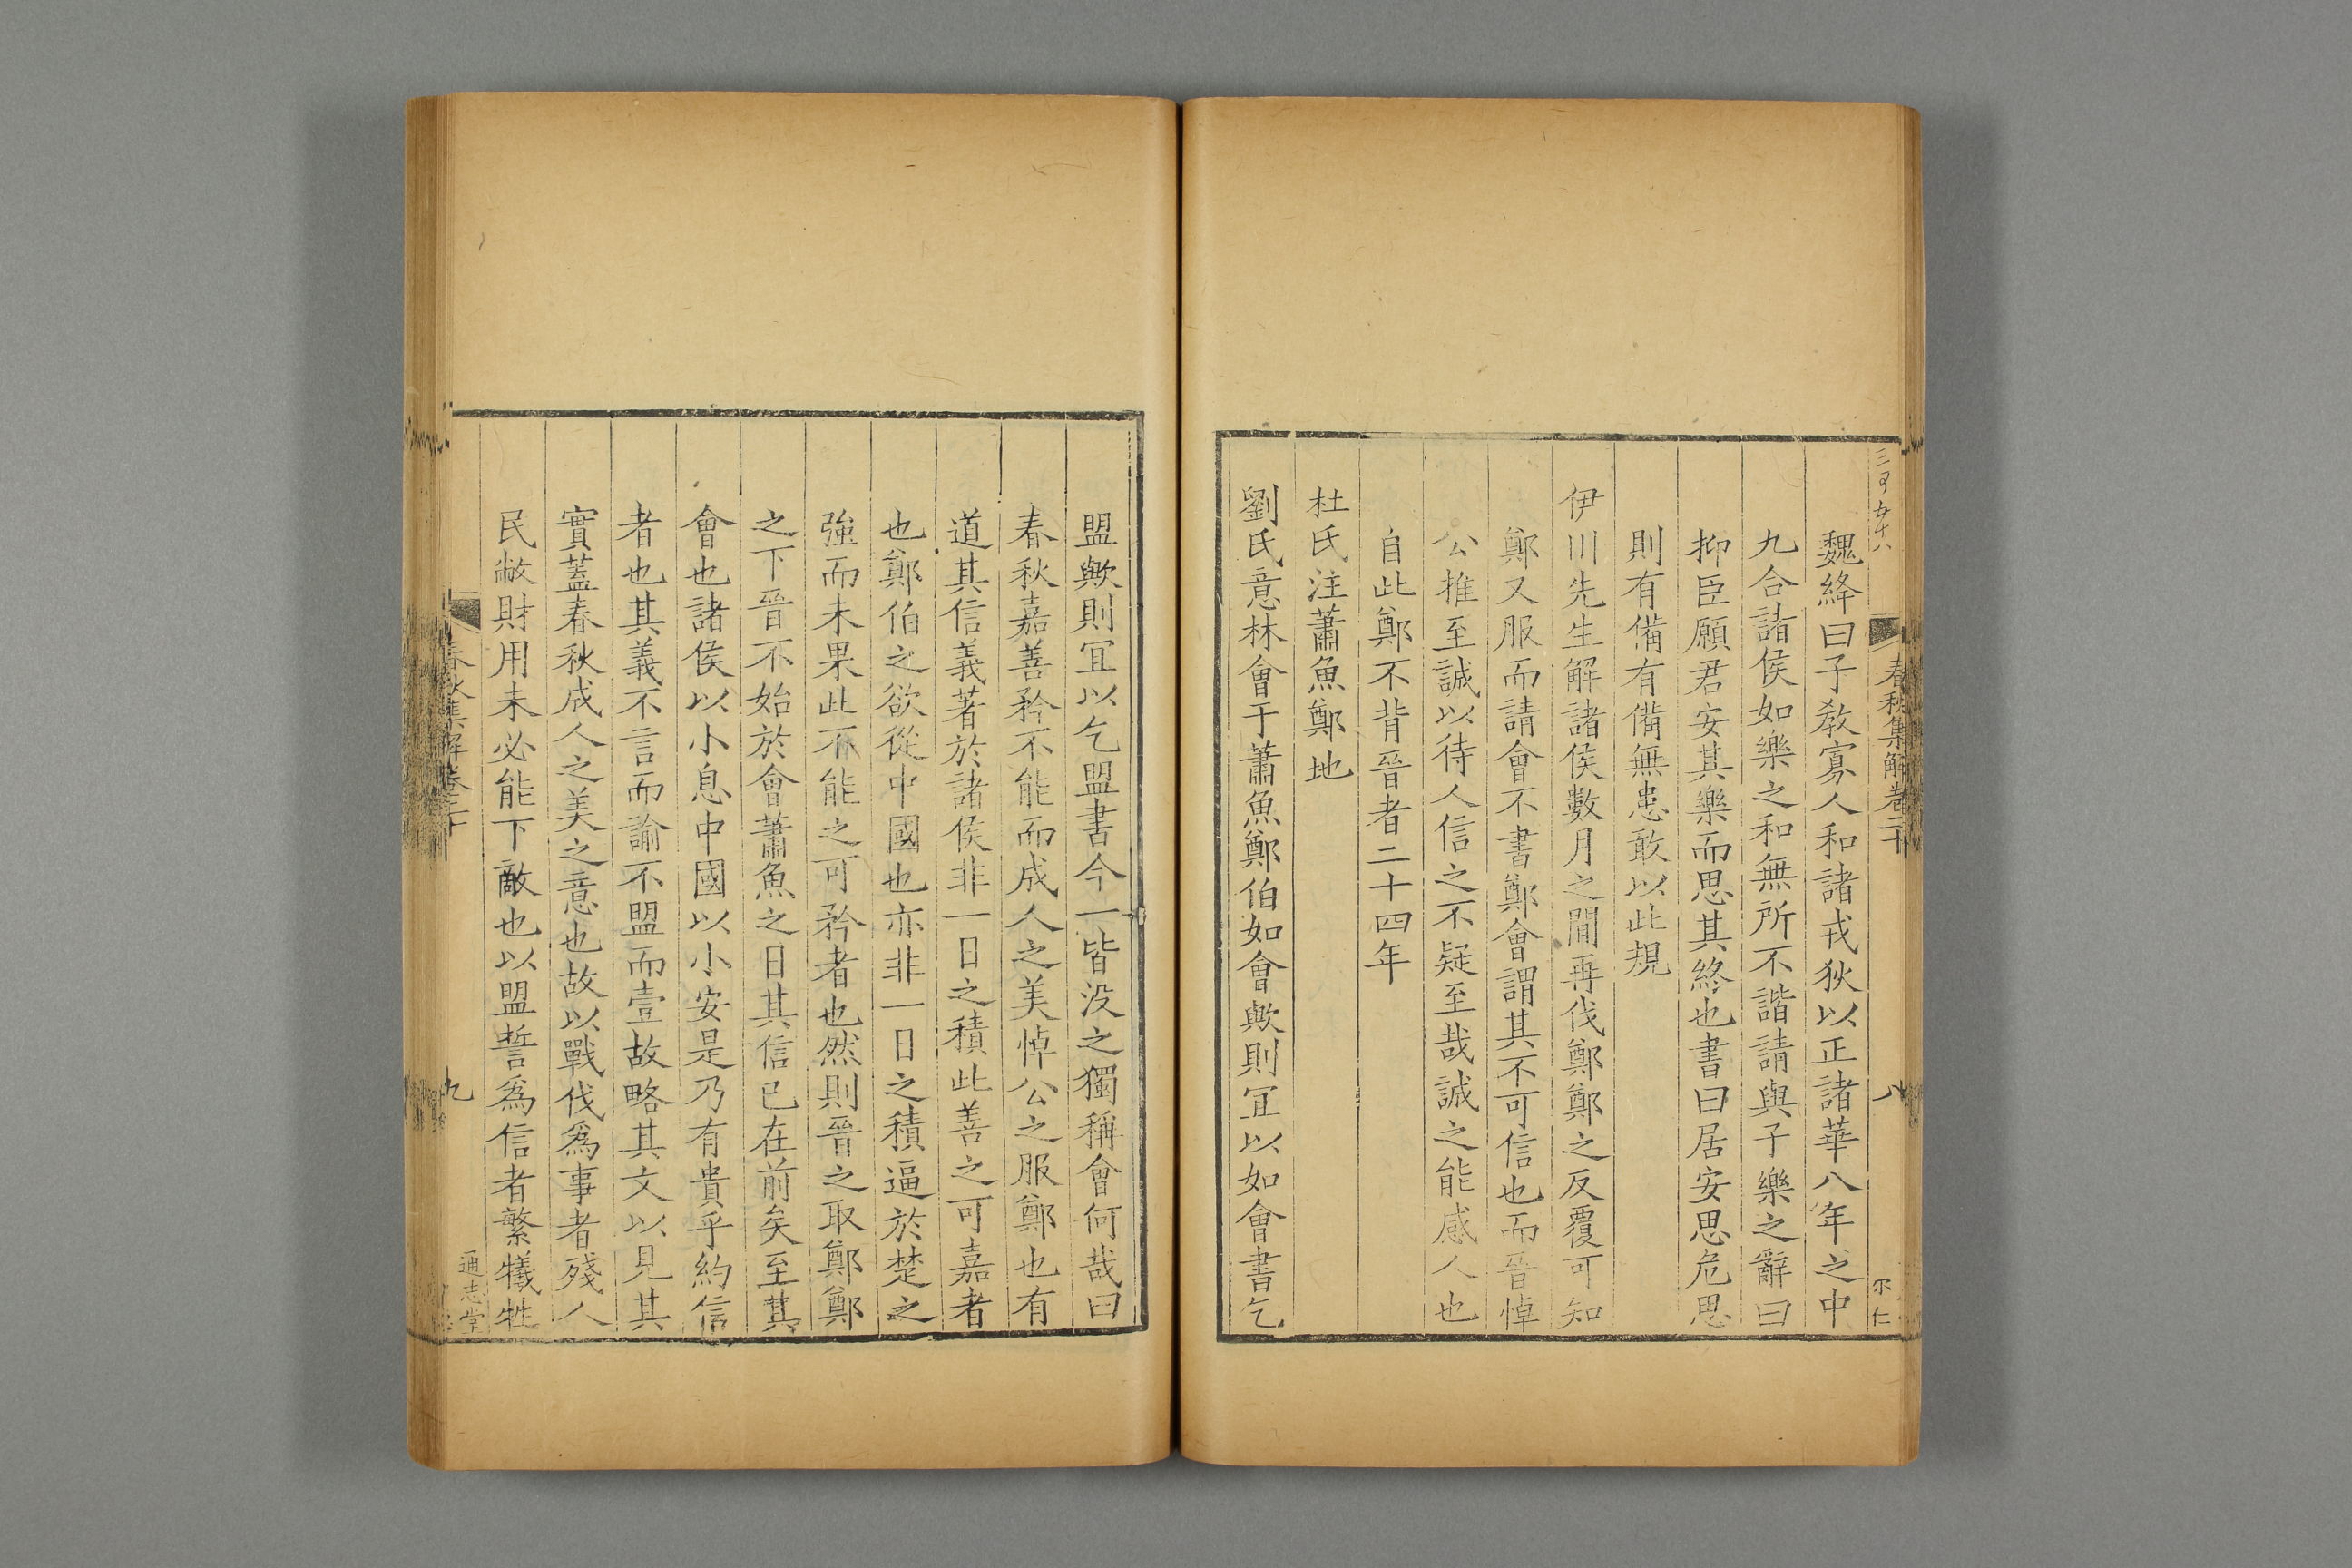 三百五十八
春秋集解卷二十
八
尒仁
魏絳曰子敎寡人和諸戎狄以正諸華八年之中
九合諸侯如樂之和無所不諧請與子樂之辭曰
抑臣願君安其樂而思其終也書曰居安思危思
則有備有備無患敢以此規
伊川先生解諸侯數月之間再伐鄭鄭之反覆可知
鄭又服而請會不書鄭會謂其不可信也而晉悼
公推至誠以待人信之不疑至哉誠之能感人也
自此鄭不背晉者二十四年
杜氏注蕭魚鄭地
劉氏意林會于蕭魚鄭伯如會歟則冝以如會書乞
盟歟則冝以乞盟書今一皆没之獨稱會何哉曰
春秋嘉善矜不能而成人之美悼公之服鄭也有
道其信義著於諸侯非一日之積此善之可嘉者
也鄭伯之欲從中國也亦非一日之積逼於楚之
強而未果此不能之可矜者也然則晉之取鄭鄭
之下晉不始於會蕭魚之日其信已在前矣至其
會也諸侯以小息中國以小安是乃有貴乎約信
者也其義不言而諭不盟而壹故略其文以見其
實蓋春秋成人之美之意也故以戰伐爲事者殘人
民敝財用未必能下敵也以盟誓爲信者繁犧牲
春秋集解卷二十
九
通志堂